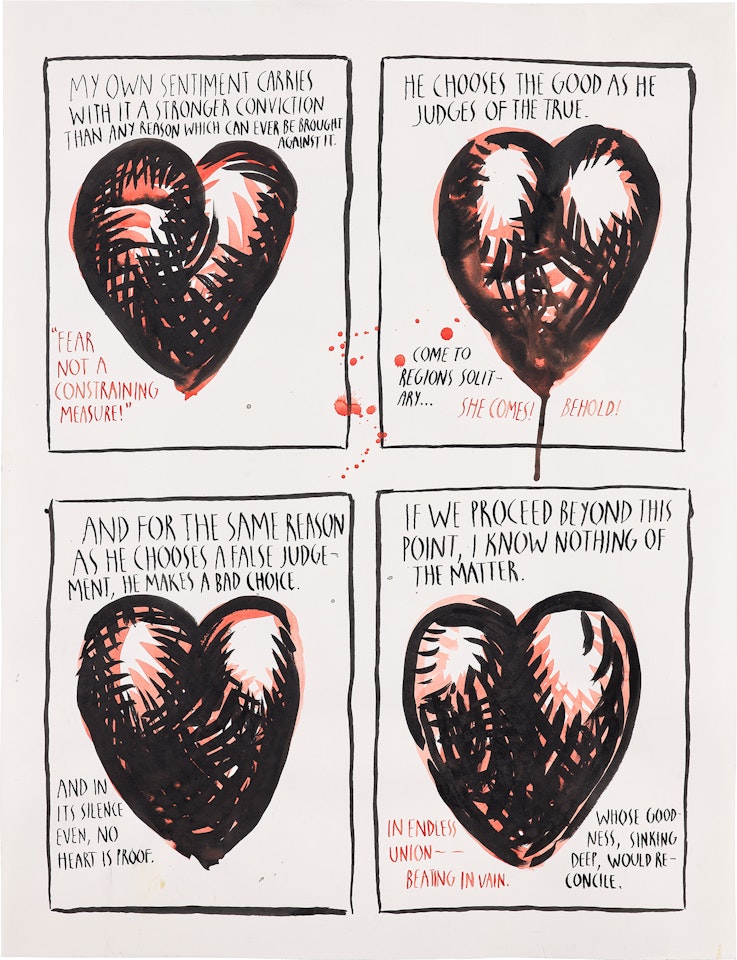 MY OWN SENTIMENT CARRIES
WITH IT A STRONGER CONVICTION
THAN ANY REASON WHICH CAN EVER BE BROUGHT
AGAINST IT.
"FEAR
NOT A
CONSTRAINING
MEASURE!"
HE CHOOSES THE GOOD AS HE
JUDGES OF THE TRUE.
COME TO
REGIONS SOLIT-
ARY... SHE COMES! BEHOLD!
AND FOR THE SAME REASON
AS HE CHOOSES A FALSE JUDGE-
MENT, HE MAKES A BAD CHOICE.
AND IN
ITS SILENCE
EVEN, NO
HEART IS PROOF.
IF WE PROCEED BEYOND THIS
POINT, I KNOW NOTHING OF
THE MATTER.
IN ENDLESS
UNION——
BEATING IN VAIN.
WHOSE GOOD-
NESS, SINKING
DEEP, WOULD RE-
CONCILE.